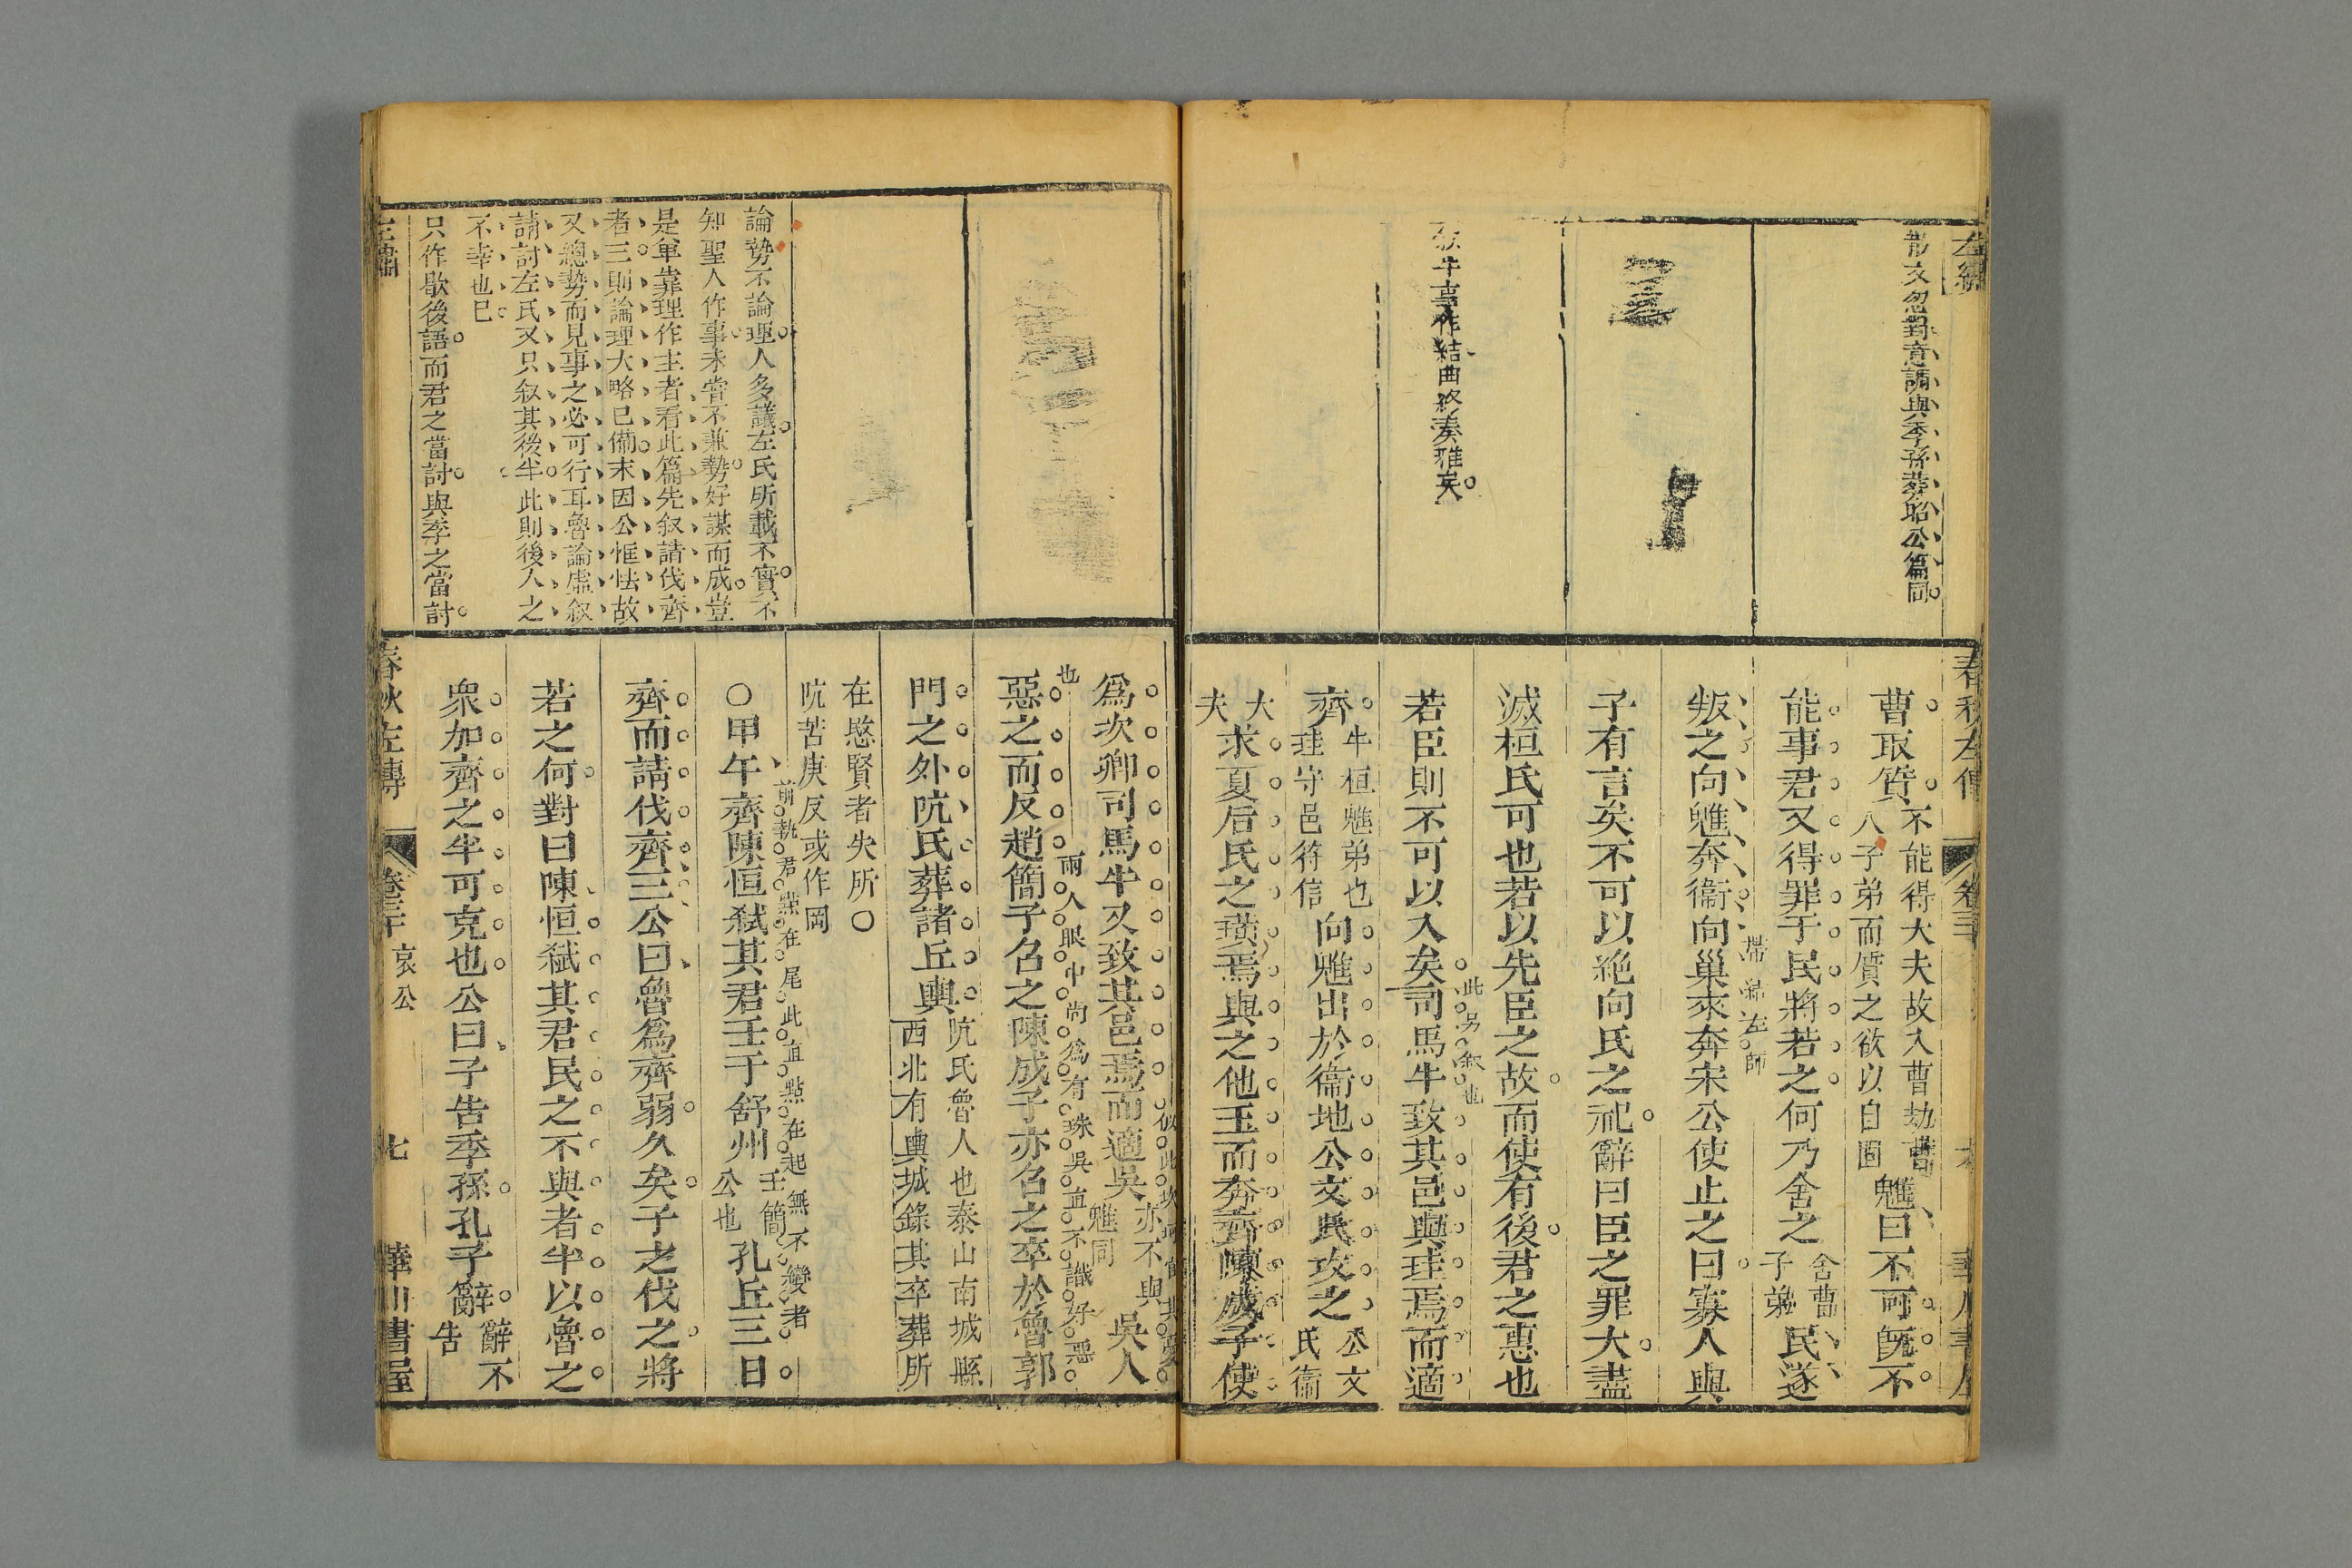 左繡
散文忽對意調與季孫葬昭公篇同
牛事作結曲終奏雅矣
春秋左傳
卷三十
華川書屋
曹取質不能得大夫故入曹劫曹
人子弟而質之欲以自固魋曰不可旣不
能事君又得罪于民將若之何乃舍之舍曹
子弟民遂
叛之向魋奔衞向巢來奔宋公使止之曰寡人與
子有言矣不可以絶向氏之祀辭曰臣之罪大盡
滅桓氏可也若以先臣之故而使有後君之惠也
若臣則不可以入矣司馬牛致其邑與珪焉而適
此另叙也
齊牛桓魋弟也
珪守邑符信向魋出於衞地公文氏攻之公文
氏衞
大
夫求夏后氏之璜焉與之他玉而奔齊陳成子使
爲次卿司馬牛又致其邑焉而適吳亦不與
魋同吳人
惡之而反趙簡子召之陳成子亦召之卒於魯郭
也
兩人眼中尚爲有珠吳直不識好惡
門之外阬氏葬諸丘輿阬氏魯人也泰山南城縣
西北有輿城錄其卒葬所
在愍賢者失所〇
阬苦庚反或作岡
〇甲午齊陳恒弑其君壬于舒州壬簡
公也孔丘三日
前孰君點在尾此直點在起無不變者
齊而請伐齊三公曰魯爲齊弱久矣子之伐之將
若之何對曰陳恒弑其君民之不與者半以魯之
衆加齊之半可克也公曰子告季孫孔子辭辭不
告
論勢不論理人多議左氏所載不實不
知聖人作事未嘗不兼勢好謀而成豈
是單靠理作主者看此篇先叙請伐齊
者三則論理大略已備末因公恇怯故
又總勢而見事之必可行耳魯論虛叙
請討左氏又只叙其後半此則後人之
不幸也已
只作歇後語而君之當討與季之當討
左繡
春秋左傳
卷三十
哀公
七
華川書屋